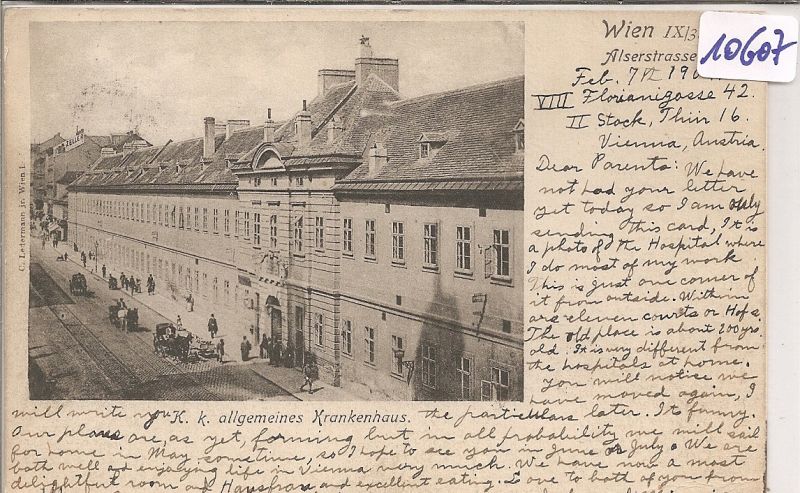 Wien IX/3
Alserstrasse
10607
Feb. 7 VI 190
VIII Florianigasse 42.
II Stock, Thür 16.
Vienna, Austria
Dear Parents: We have
not had your letter
yet today so I am only
sending this card, It is
a photo of the Hospital where
I do most of my work
This is just one corner of
it from outside. Within
are eleven courts or Hofs,
The old place is about 200 yrs
old. It is very different from
the hospitals at home.
You will notice we
have moved again, I
will write you the particulars later. Its funny.
K. k. allgemeines Krankenhaus.
Our plans are, as yet, forming but in all probability we will sail
for home in May sometime, so I hope to see you in June or July. We are
both well and enjoying life in Vienna very much. We have now a most
delightful room and Hausfrau and excellent eating. Love to both of you from
C. Ledermann jr. Wien I.